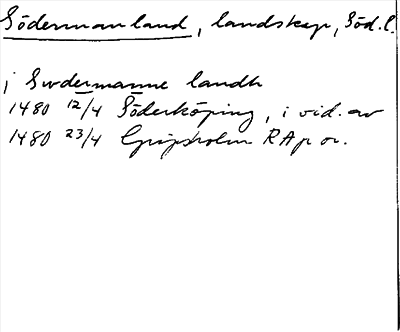 Södermanland, landskap, Söd.l.
i Swdermanne landh
1480 12/4 Söderköping, i vid. av
1480 23/4 Gripsholm RAp or.